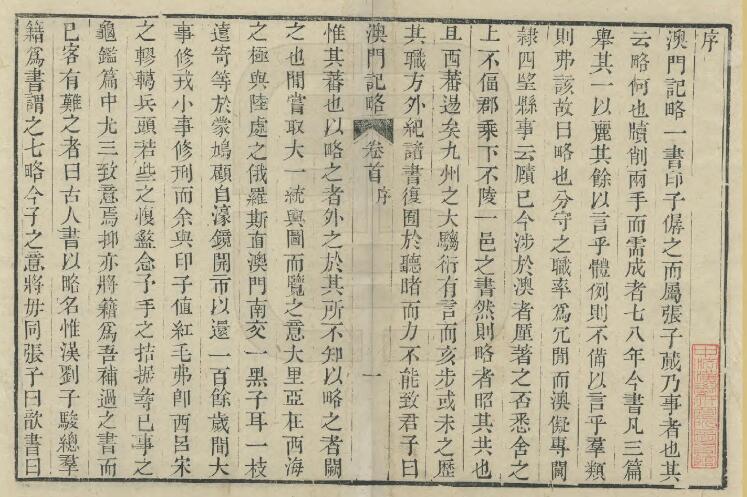 序
澳門記略一書印子僝之而屬張子蕆乃事者也其
云略何也牘削兩手而需成者七八年今書凡三篇
舉其一以麗其餘以言乎體例則不備以言乎羣類
則弗該故曰略也分守之職率爲冗閒而澳儗專閫
隸四望縣事云牘已今涉於澳者厪著之否悉舍之
上不偪郡乘下不陵一邑之書然則略者略其共也
且西蕃邊矣九州之大騶衍有言而亥步或未之歷
其職方外紀諸書復囿於聽睹而力不能致君子曰
澳門記略 卷首 序 一
惟其蕃也以略之者外之於其所不知以略之者闕
之也間嘗取大一統輿圖而覽之意大里亞在西海
之極與陸處之俄羅斯首澳門南交一黑子耳一枝
遠寄等於蒙鳩顧自濠鏡開市以還一百餘歲間大
事修戎小事修刑而余與印子值紅毛弗郎西呂宋
之轇轕兵頭若些之愎盭念予手之拮据尋已事之
龜鑑篇中尤三致意焉抑亦將籍爲吾補過之書而
已客有難之者曰古人書以略名惟漢劉子駿總羣
籍爲書謂之七略今子之意將毋同張子曰歆書曰